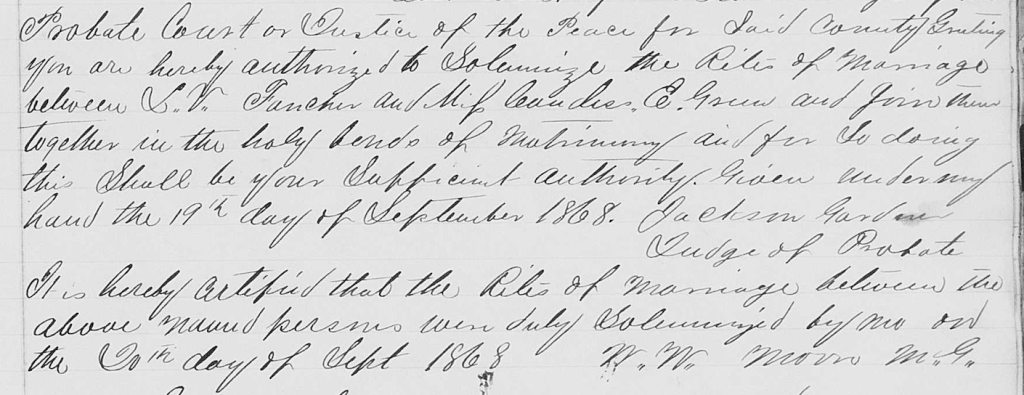 Probate Court or Justice of the Peace for Said County Greeting
you are hereby authorized to Solemnize the Rites of Marriage
between L. V. Fancher and Miss Candiss. E. Green and Join them
together in the holy bonds of Matrimony and for So doing
this Shall be your Sufficient authority. Given under my
hand the 19th day of September 1868. Jackson Gardner
Judge of Probate
It is hereby Certified that the Rites of Marriage between the
above named persons were duly Solemnized by me on
the 20th day of Sept 1868 W. W. Moore M. G.